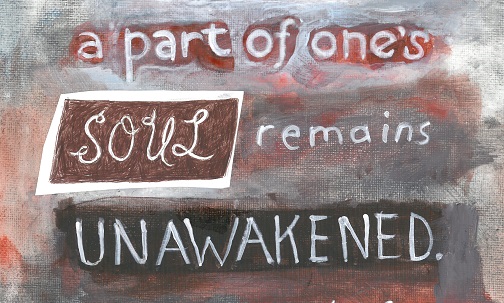 a part of one's
SOUL remains
UNAWAKENED.